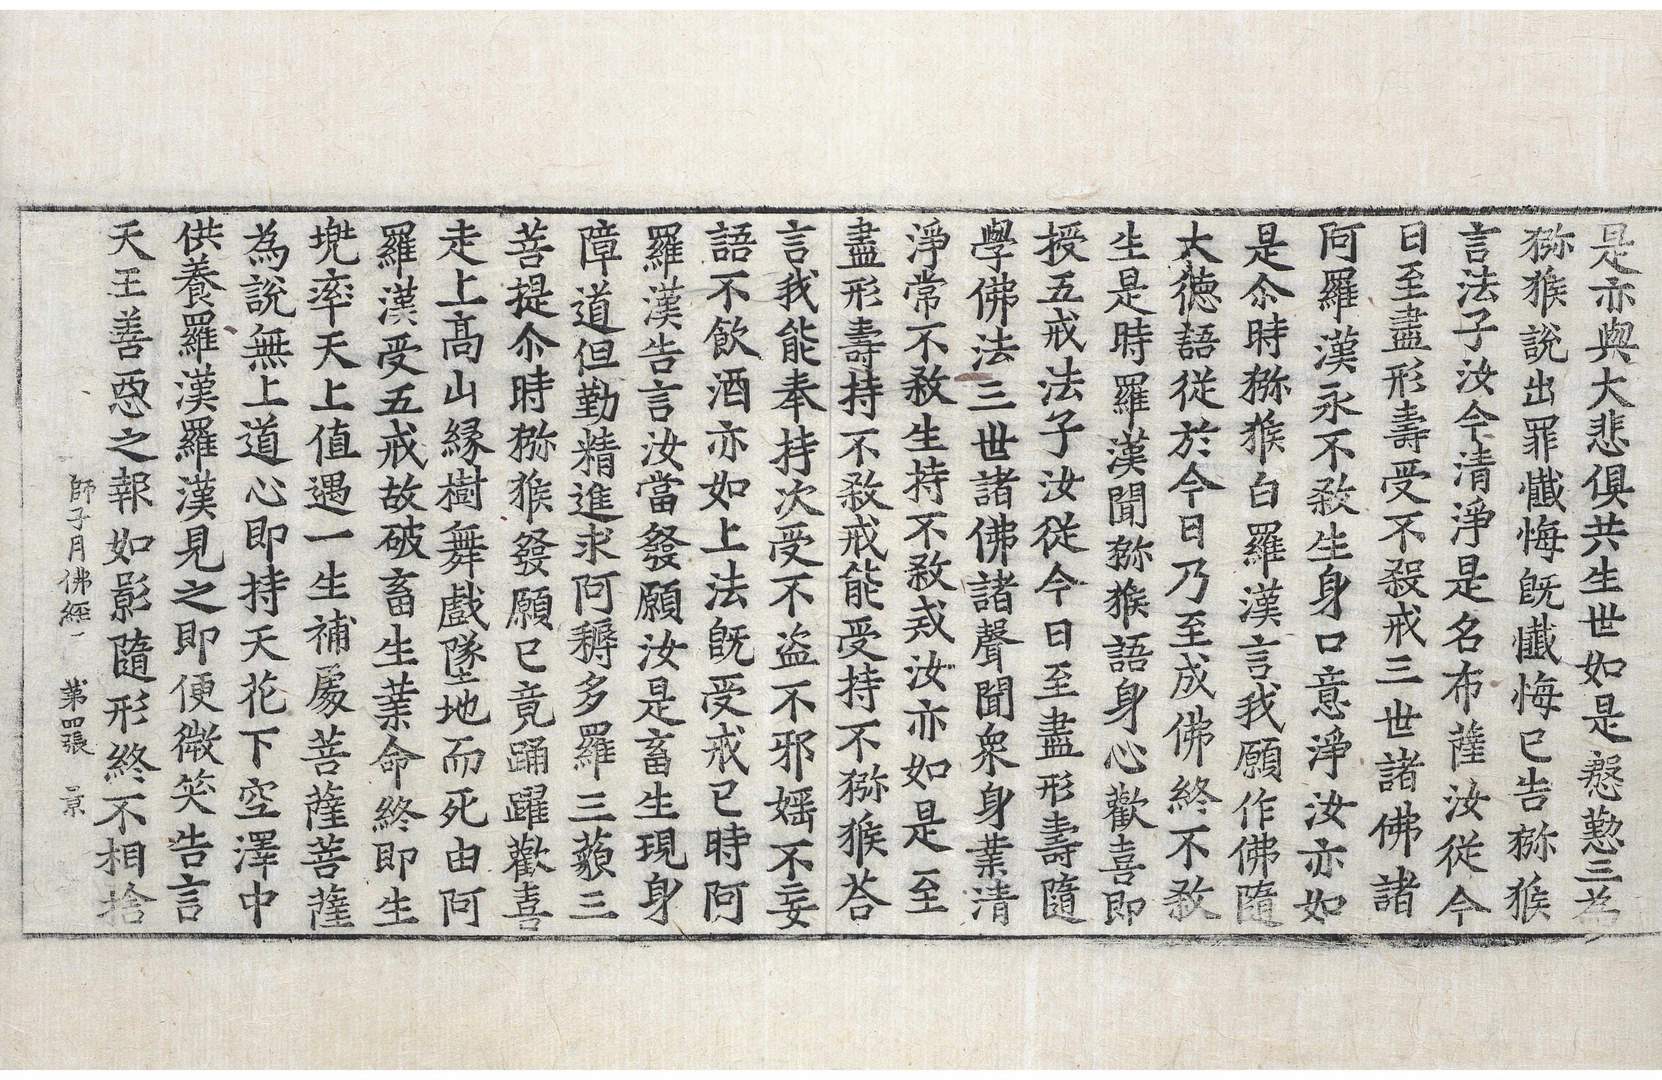 是亦與大悲俱共生世如是慇懃三為
猕猴說出罪懺悔旣懺悔已告猕猴
言法子汝今清淨是名布薩汝從今
日至盡形壽受不殺戒三世諸佛諸
阿羅漢永不敎生身口意淨汝亦如
是尒時猕猴白羅漢言我願作佛隨
大德語從於今日乃至成佛終不敎
生是時羅漢聞猕猴語身心歡喜即
授五戒法子汝從今日至盡形壽隨
學佛法三世諸佛諸聲聞衆身業清
淨常不敎生持不敎戒汝亦如是至
盡形壽持不敎戒能受持不猕猴荅
言我能奉持次受不盜不邪婬不妄
語不飲酒亦如上法旣受戒已時阿
羅漢告言汝當發願汝是畜生現身
障道但勤精進求阿耨多羅三藐三
菩提尒時猕猴發願已竟踊躍歡喜
走上高山緣樹舞戲墜地而死由阿
羅漢受五戒故破畜生業命終即生
兠率天上值遇一生補處菩薩菩薩
為說無上道心即持天花下空澤中
供養羅漢羅漢見之即便微笑告言
天王善惡之報如影隨形終不相捨
師子月佛經一 第四張 景